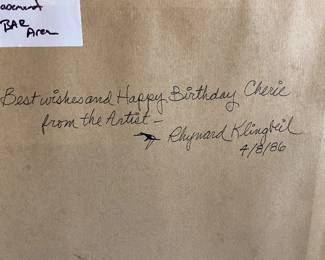 Basement
BAR
Area
Best wishes and Happy Birthday Cherie
from the Artist —
Rhynard Klingbeil
4/8/86